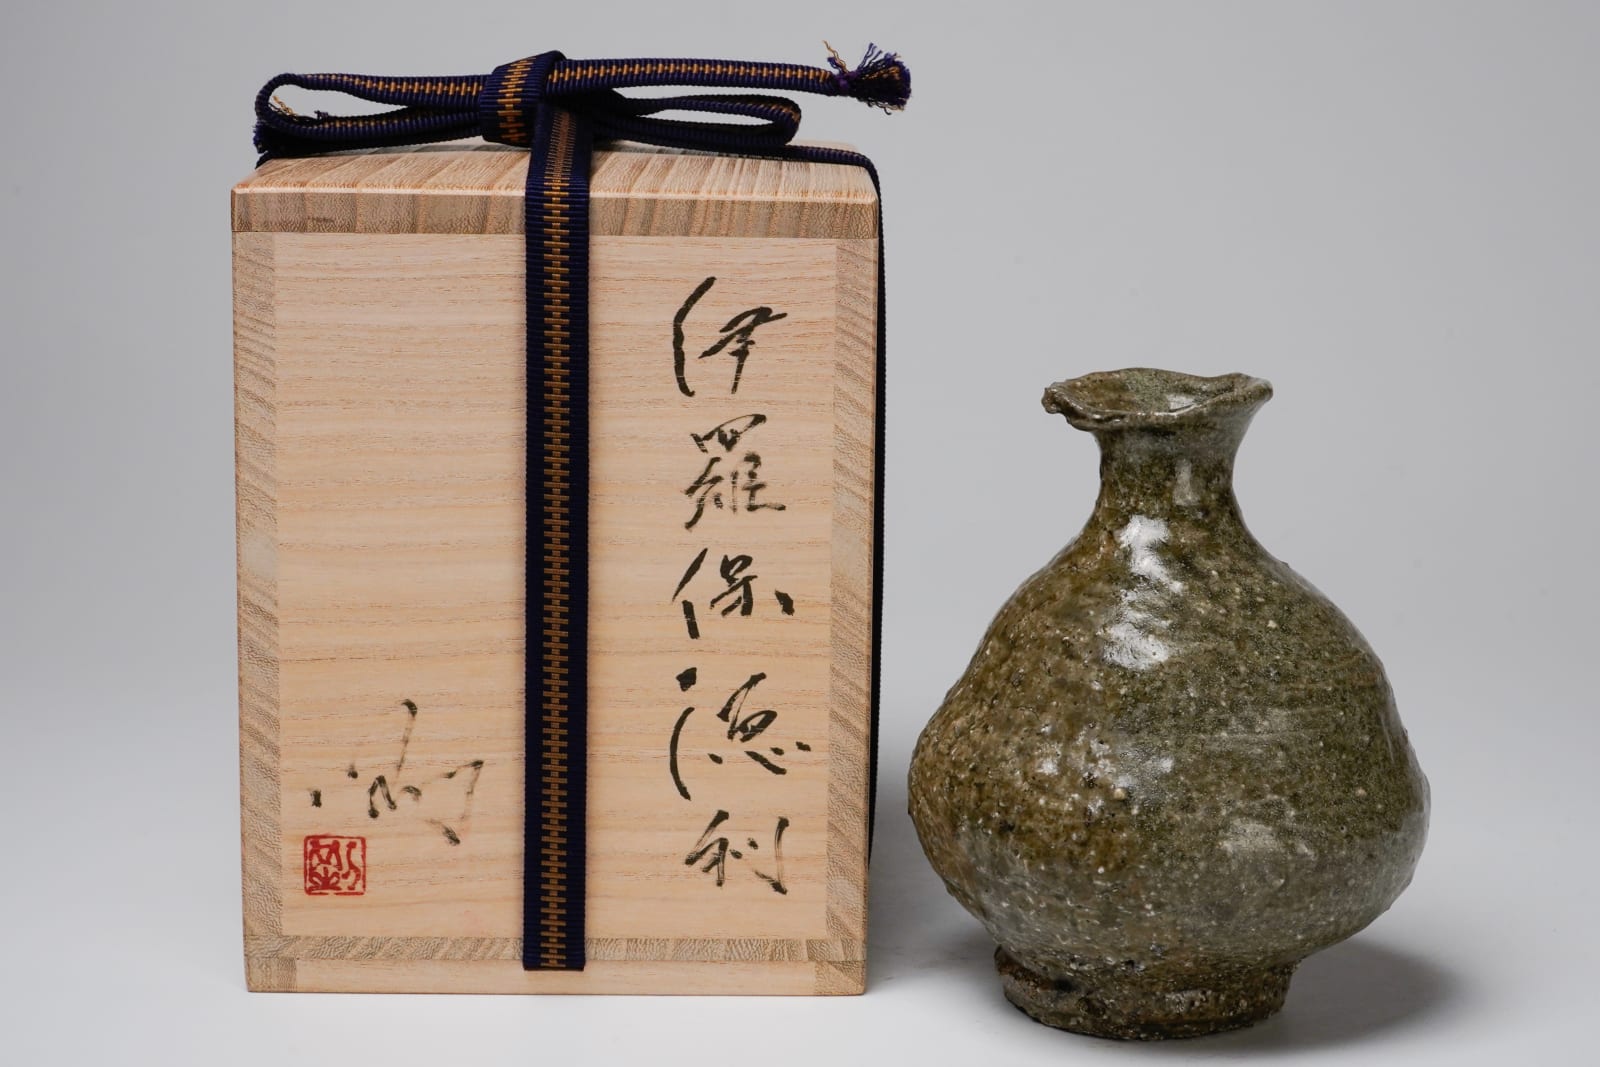 伊羅保徳利
剛